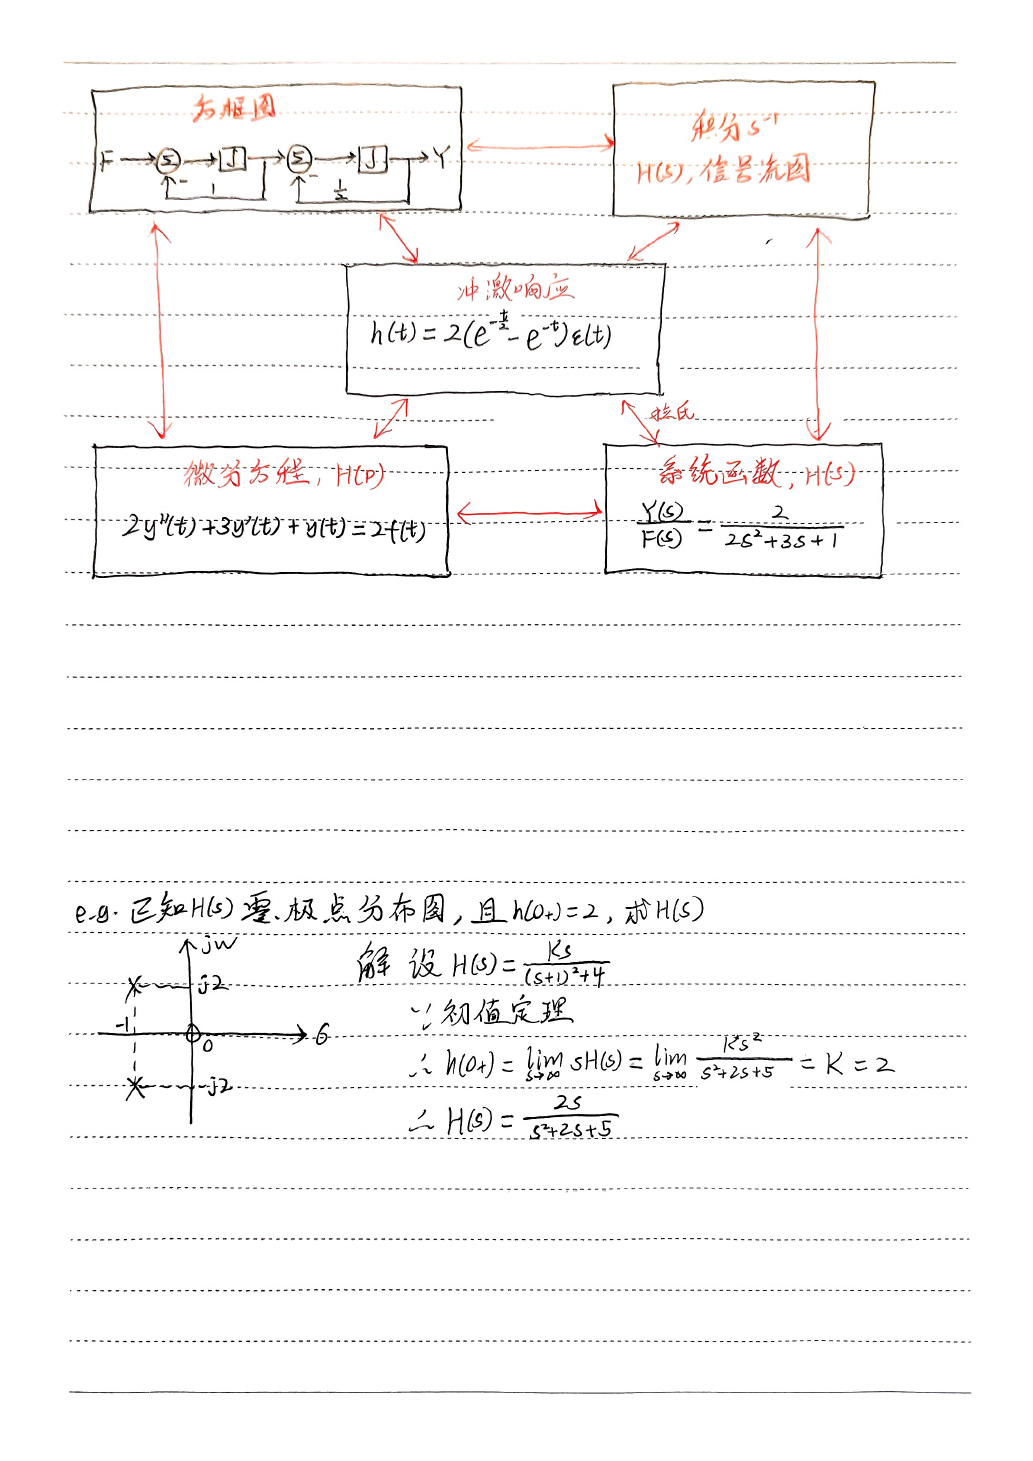 方框图
F → Σ → ∫ → Σ → ∫ → Y
- 1 - 1/2
积分 s⁻¹
H(s), 信号流图
冲激响应
h(t) = 2(e^{-t/2} - e^{-t})ε(t)
拉氏
微分方程, H(p)
2y''(t)+3y'(t)+y(t)=2f(t)
系统函数, H(s)
Y(s)/F(s) = 2/(2s²+3s+1)
e.g. 已知H(s) 零、极点分布图, 且h(0+)=2, 求H(s)
jω
j2
-1
0
σ
-j2
解 设 H(s) = Ks/((s+1)²+4)
∵ 初值定理
∴ h(0+) = lim_{s→∞} sH(s) = lim_{s→∞} Ks²/(s²+2s+5) = K = 2
∴ H(s) = 2s/(s²+2s+5)